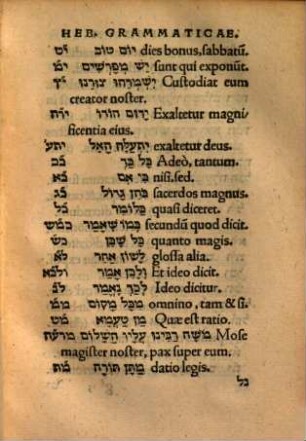 HEB. GRAMMATICAE.
יום טוב dies bonus, sabbatū. י״ט
יש מפרשים sunt qui exponūt. ימ׳
ישמרהו צורנו Custodiat eum י״ץ
creator noster.
ירום הודו Exaltetur magni יר״ה
ficentia eius.
יתעלה האל exaltetur deus. יתע׳
כל כך Adeò, tantum.
כי אם nisi. sed.
כהן גדול sacerdos magnus. כג
כלומר quasi diceret. כל
כמו שאמר secundū quod dicit. כמש
כל שכן quanto magis. כש
לשון אחר glossa alia. לא
ולכן אמר Et ideo dicit. ולא
לכך נאמר Ideo dicitur. לנ
מכל מקום omnino, tam & si. ממ
מן טעמא Quæ est ratio. מט
משה רבינו עליו השלום Mose
magister noster, pax super eum.
מתן תורה datio legis. מת
כל